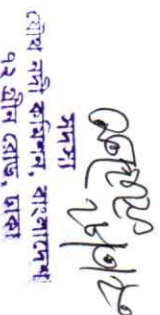 সদস্য
যৌথ নদী কমিশন, বাংলাদেশ
৭২ গ্রীন রোড, ঢাকা